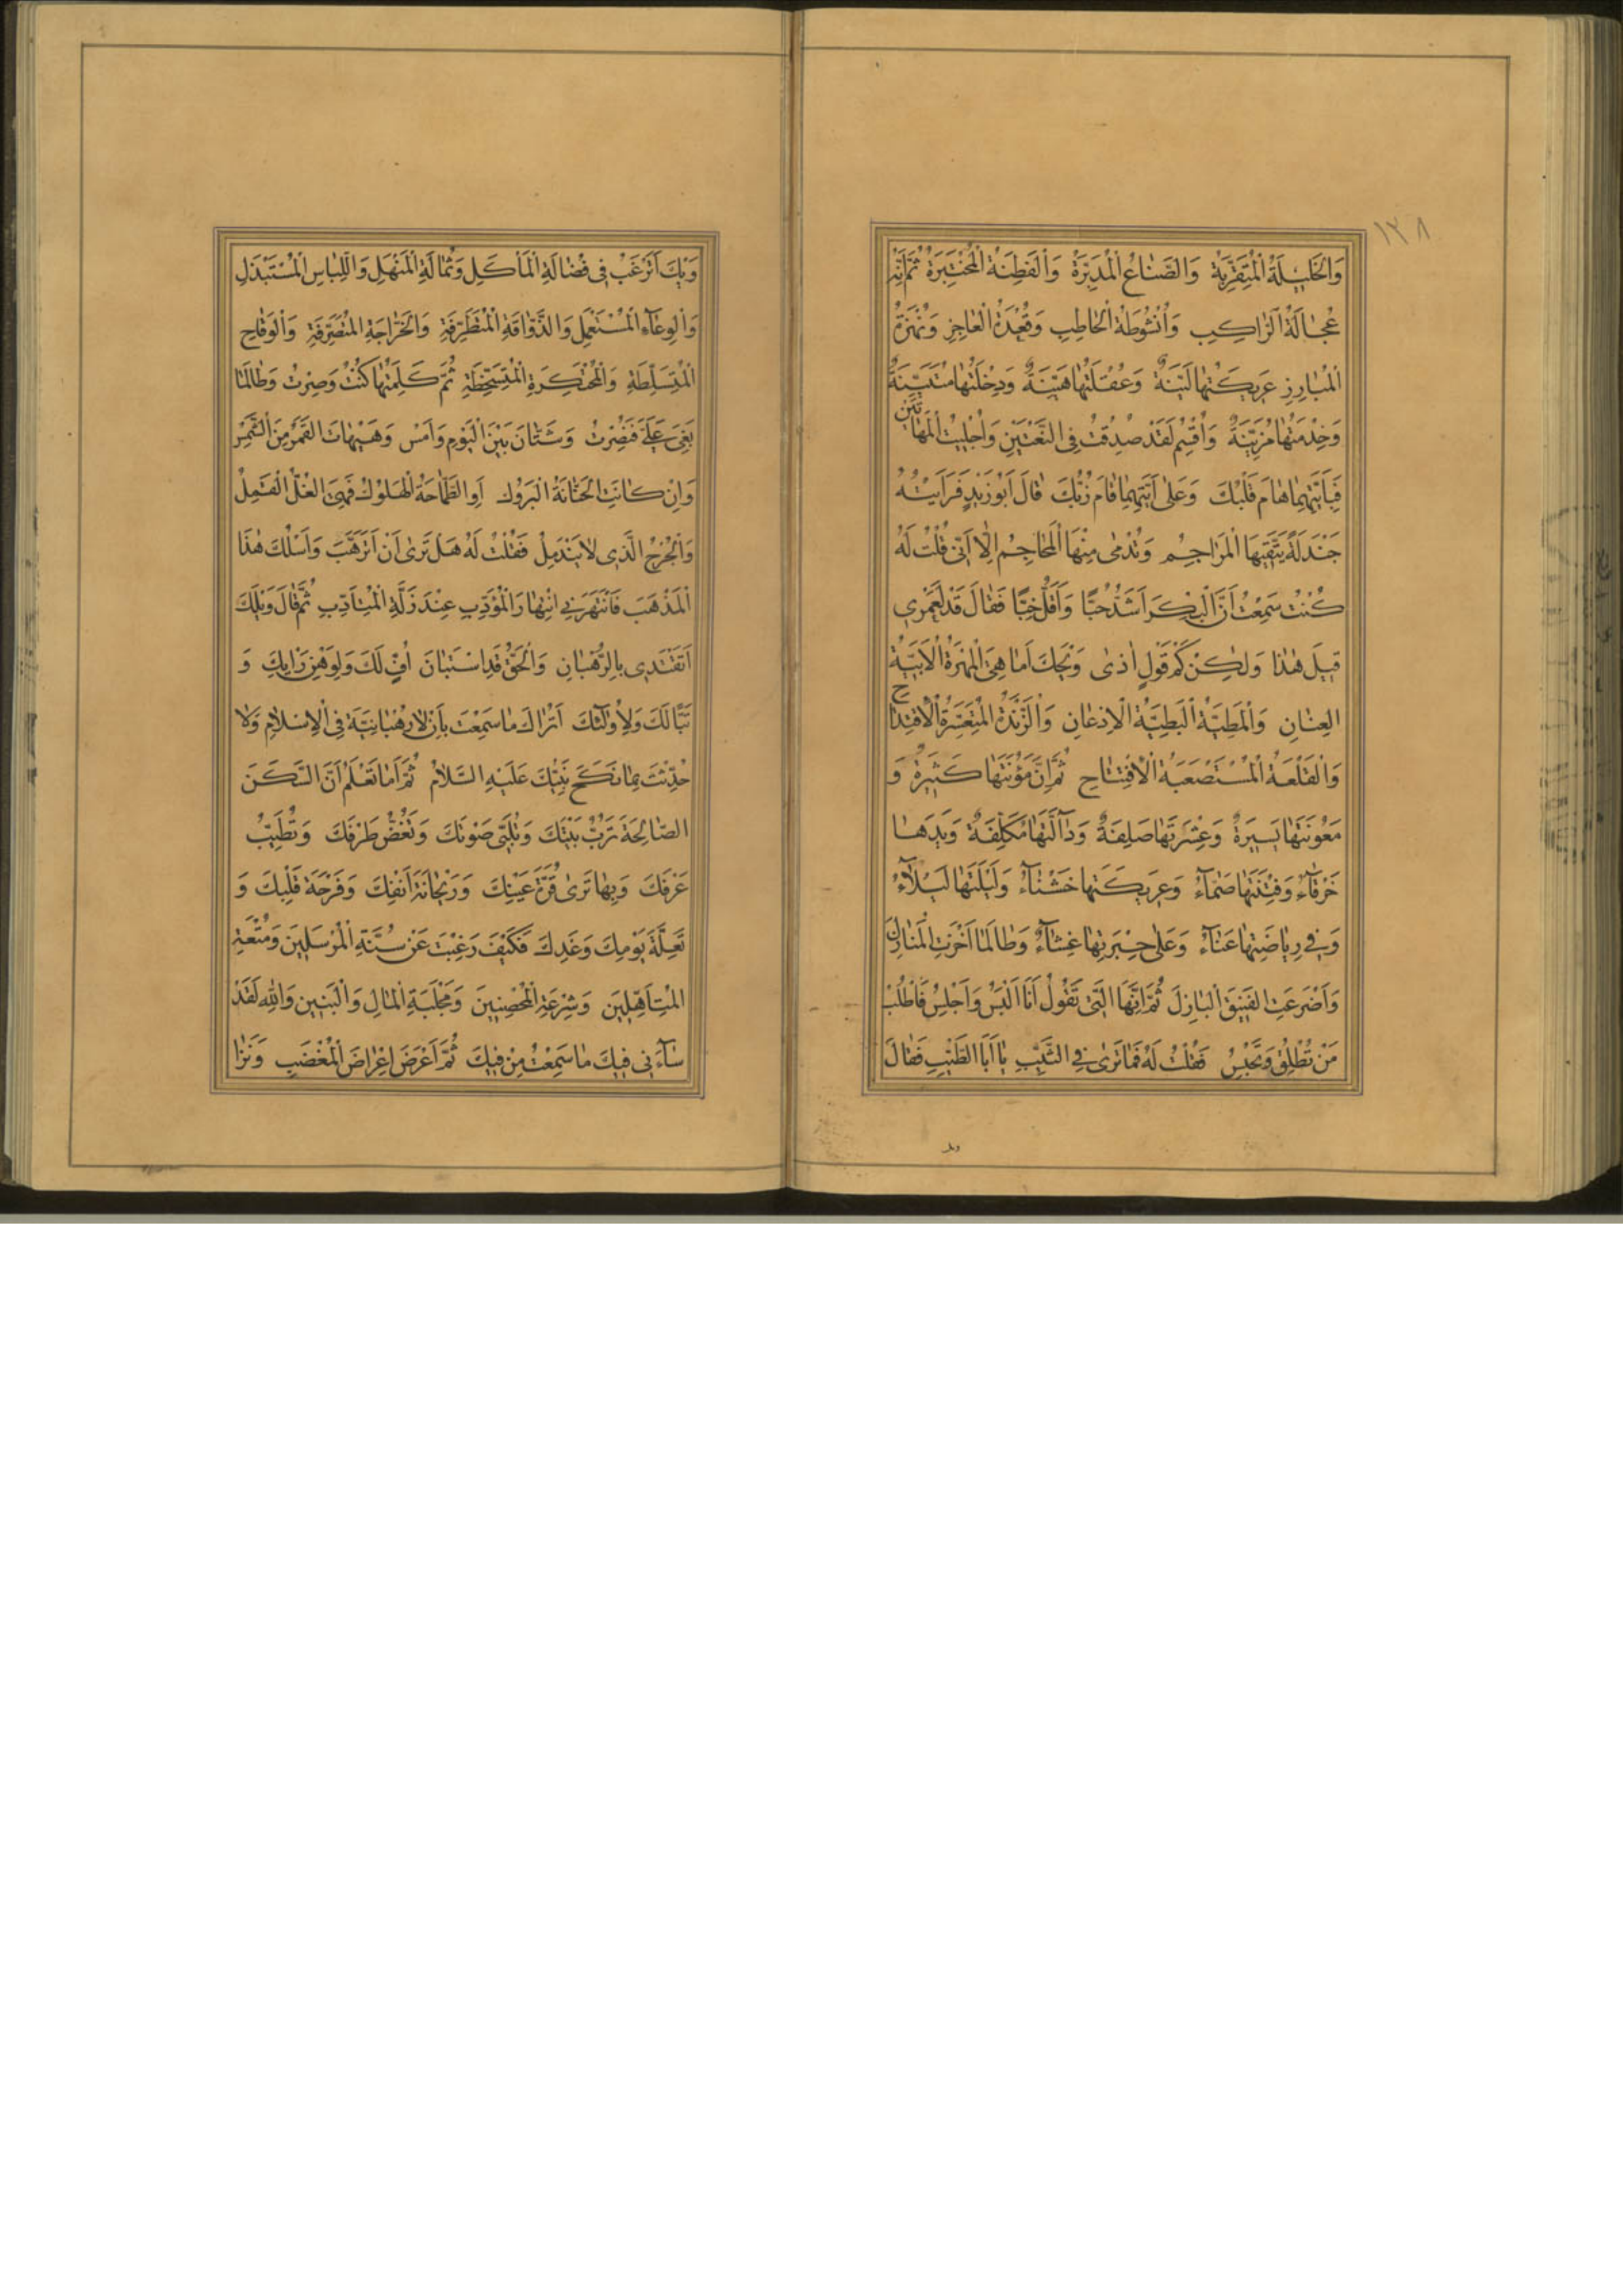 ١٣٨
وَالْخَلِيلَةُ الْمُتَقَرِّبَةُ وَالصَّنَاعُ الْمُدَبِّرَةُ وَالْفَطِنَةُ الْمُخْتَبِرَةُ ثُمَّ اِنَّهَا
عُجَالَةُ الرَّاكِبِ وَاُنْشُوطَةُ الْخَاطِبِ وَقُعْدَةُ الْعَاجِزِ وَنُهْزَةُ
الْمُبَارِزِ عَرِيكَتُهَا لَيِّنَةٌ وَعُقْلَتُهَا هَيِّنَةٌ وَدِخْلَتُهَا مُتَبَيِّنَةٌ
وَخِدْمَتُهَا مُزَيِّنَةٌ وَاُقْسِمُ لَقَدْ صَدَقْتُ فِى النَّعْتَيْنِ وَاَجْلَيْتُ الْمَهَاتَيْنِ
فَبِاَيَّتِهِمَا هَامَ قَلْبُكَ وَعَلَى اَيَّتِهِمَا قَامَ زُبُّكَ قَالَ اَبُو زَيْدٍ فَرَاَيْتُهُ
جَنْدَلَةً يَتَّقِيهَا الْمَرَاجِمُ وَتُدْمٰى مِنْهَا الْمَحَاجِمُ اِلَّا اَنِّى قُلْتُ لَهُ
كُنْتُ سَمِعْتُ اَنَّ الْبِكْرَ اَشَدُّ حُبًّا وَاَقَلُّ خِبًّا فَقَالَ قَدْ لَعَمْرِى
قِيلَ هٰذَا وَلٰكِنْ كَمْ قَوْلٍ اٰذٰى وَيْحَكَ اَمَا هِىَ الْمُهْرَةُ الْاَبِيَّةُ
الْعِنَانِ وَالْمَطِيَّةُ الْبَطِيَّةُ الْاِذْعَانِ وَالزَّنْدَةُ الْمُتَعَسِّرَةُ الْاِقْتِدَاحِ
وَالْقَلْعَةُ الْمُسْتَصْعَبَةُ الْاِفْتِتَاحِ ثُمَّ اِنَّ مَؤُنَتَهَا كَثِيرَةٌ وَ
مَعُونَتَهَا يَسِيرَةٌ وَعِشْرَتَهَا صَلِفَةٌ وَدَآلَّتَهَا مُكَلِّفَةٌ وَيَدَهَا
خَرْقَآءُ وَفِتْنَتَهَا صَمَّآءُ وَعَرِيكَتَهَا خَشْنَآءُ وَلَيْلَتَهَا لَيْلَآءُ
وَفِى رِيَاضَتِهَا عَنَآءٌ وَعَلٰى خِبْرَتِهَا غِشَآءٌ وَطَالَمَا اَخْزَتِ الْمُنَازِلَ
وَاَضْرَعَتِ الْفَنِيقَ الْبَازِلَ ثُمَّ اِنَّهَا الَّتِى تَقُولُ اَنَا اَلْبَسُ وَاَجْلِسُ فَاطْلُبْ
مَنْ تُطْلِقُ وَتَحْبِسُ فَقُلْتُ لَهُ فَمَا تَرٰى فِى الثَّيِّبِ يَا اَبَا الطَّيِّبِ فَقَالَ
وَيْكَ اَتَرْغَبُ فِى فُضَالَةِ الْمَاْكَلِ وَثُمَالَةِ الْمَنْهَلِ وَاللِّبَاسِ الْمُسْتَبْذَلِ
وَالْوِعَآءِ الْمُسْتَعْمَلِ وَالذَّوَّاقَةِ الْمُتَطَرِّفَةِ وَالْخَرَّاجَةِ الْمُتَصَرِّفَةِ وَالْوَقَاحِ
الْمُتَسَلِّطَةِ وَالْمُحْتَكِرَةِ الْمُتَسَخِّطَةِ ثُمَّ كَلِمَتُهَا كُنْتُ وَصِرْتُ وَطَالَمَا
بُغِىَ عَلَىَّ فَنُصِرْتُ وَشَتَّانَ بَيْنَ الْيَوْمِ وَاَمْسِ وَهَيْهَاتَ الْقَمَرُ مِنَ الشَّمْسِ
وَاِنْ كَانَتِ الْحَنَّانَةَ الْبَرُوكَ اَوِ الطَّمَّاحَةَ الْهَلُوكَ فَهِىَ الْغُلُّ الْقَمِلُ
وَالْجُرْحُ الَّذِى لَا يَنْدَمِلُ فَقُلْتُ لَهُ هَلْ تَرٰى اَنْ اَتَرَهَّبَ وَاَسْلُكَ هٰذَا
الْمَذْهَبَ فَانْتَهَرَنِى انْتِهَارَ الْمُؤَدِّبِ عِنْدَ زَلَّةِ الْمُتَاَدِّبِ ثُمَّ قَالَ وَيْلَكَ
اَتَقْتَدِى بِالرُّهْبَانِ وَالْحَقُّ قَدِ اسْتَبَانَ اُفٍّ لَكَ وَلِوَهْنِ رَايِكَ وَ
تَبًّا لَكَ وَلِاُولٰئِكَ اَتُرَاكَ مَا سَمِعْتَ بِاَنْ لَا رَهْبَانِيَّةَ فِى الْاِسْلَامِ وَلَا
حُدِّثْتَ بِمَا نَكَحَ نَبِيُّكَ عَلَيْهِ السَّلَامُ ثُمَّ اَمَا تَعْلَمُ اَنَّ السَّكَنَ
الصَّالِحَةَ تَرُبُّ بَيْتَكَ وَتُلَبِّى صَوْتَكَ وَتَغُضُّ طَرْفَكَ وَتُطَيِّبُ
عَرْفَكَ وَبِهَا تَرٰى قُرَّةَ عَيْنِكَ وَرَيْحَانَةَ اَنْفِكَ وَفَرْحَةَ قَلْبِكَ وَ
تَعِلَّةَ يَوْمِكَ وَغَدِكَ فَكَيْفَ رَغِبْتَ عَنْ سُنَّةِ الْمُرْسَلِينَ وَمُتْعَةِ
الْمُتَاَهِّلِينَ وَشِرْعَةِ الْمُحْصِنِينَ وَمَجْلَبَةِ الْمَالِ وَالْبَنِينَ وَاللّٰهِ لَقَدْ
سَآءَنِى فِيكَ مَا سَمِعْتُ مِنْ فِيكَ ثُمَّ اَعْرَضَ اِعْرَاضَ الْمُغْضَبِ وَنَزَا